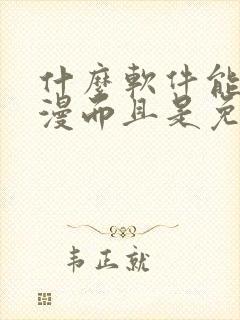 什麼軟件能
漫而且是免
韦正就